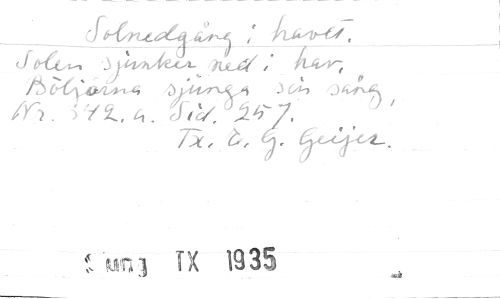 Solnedgång i havet.
Solen sjunker ned i hav,
Böljorna sjunga sin sång,
Nr. 342. a. Sid. 257.
Tx. E. G. Geijer.
Sjung TX 1935